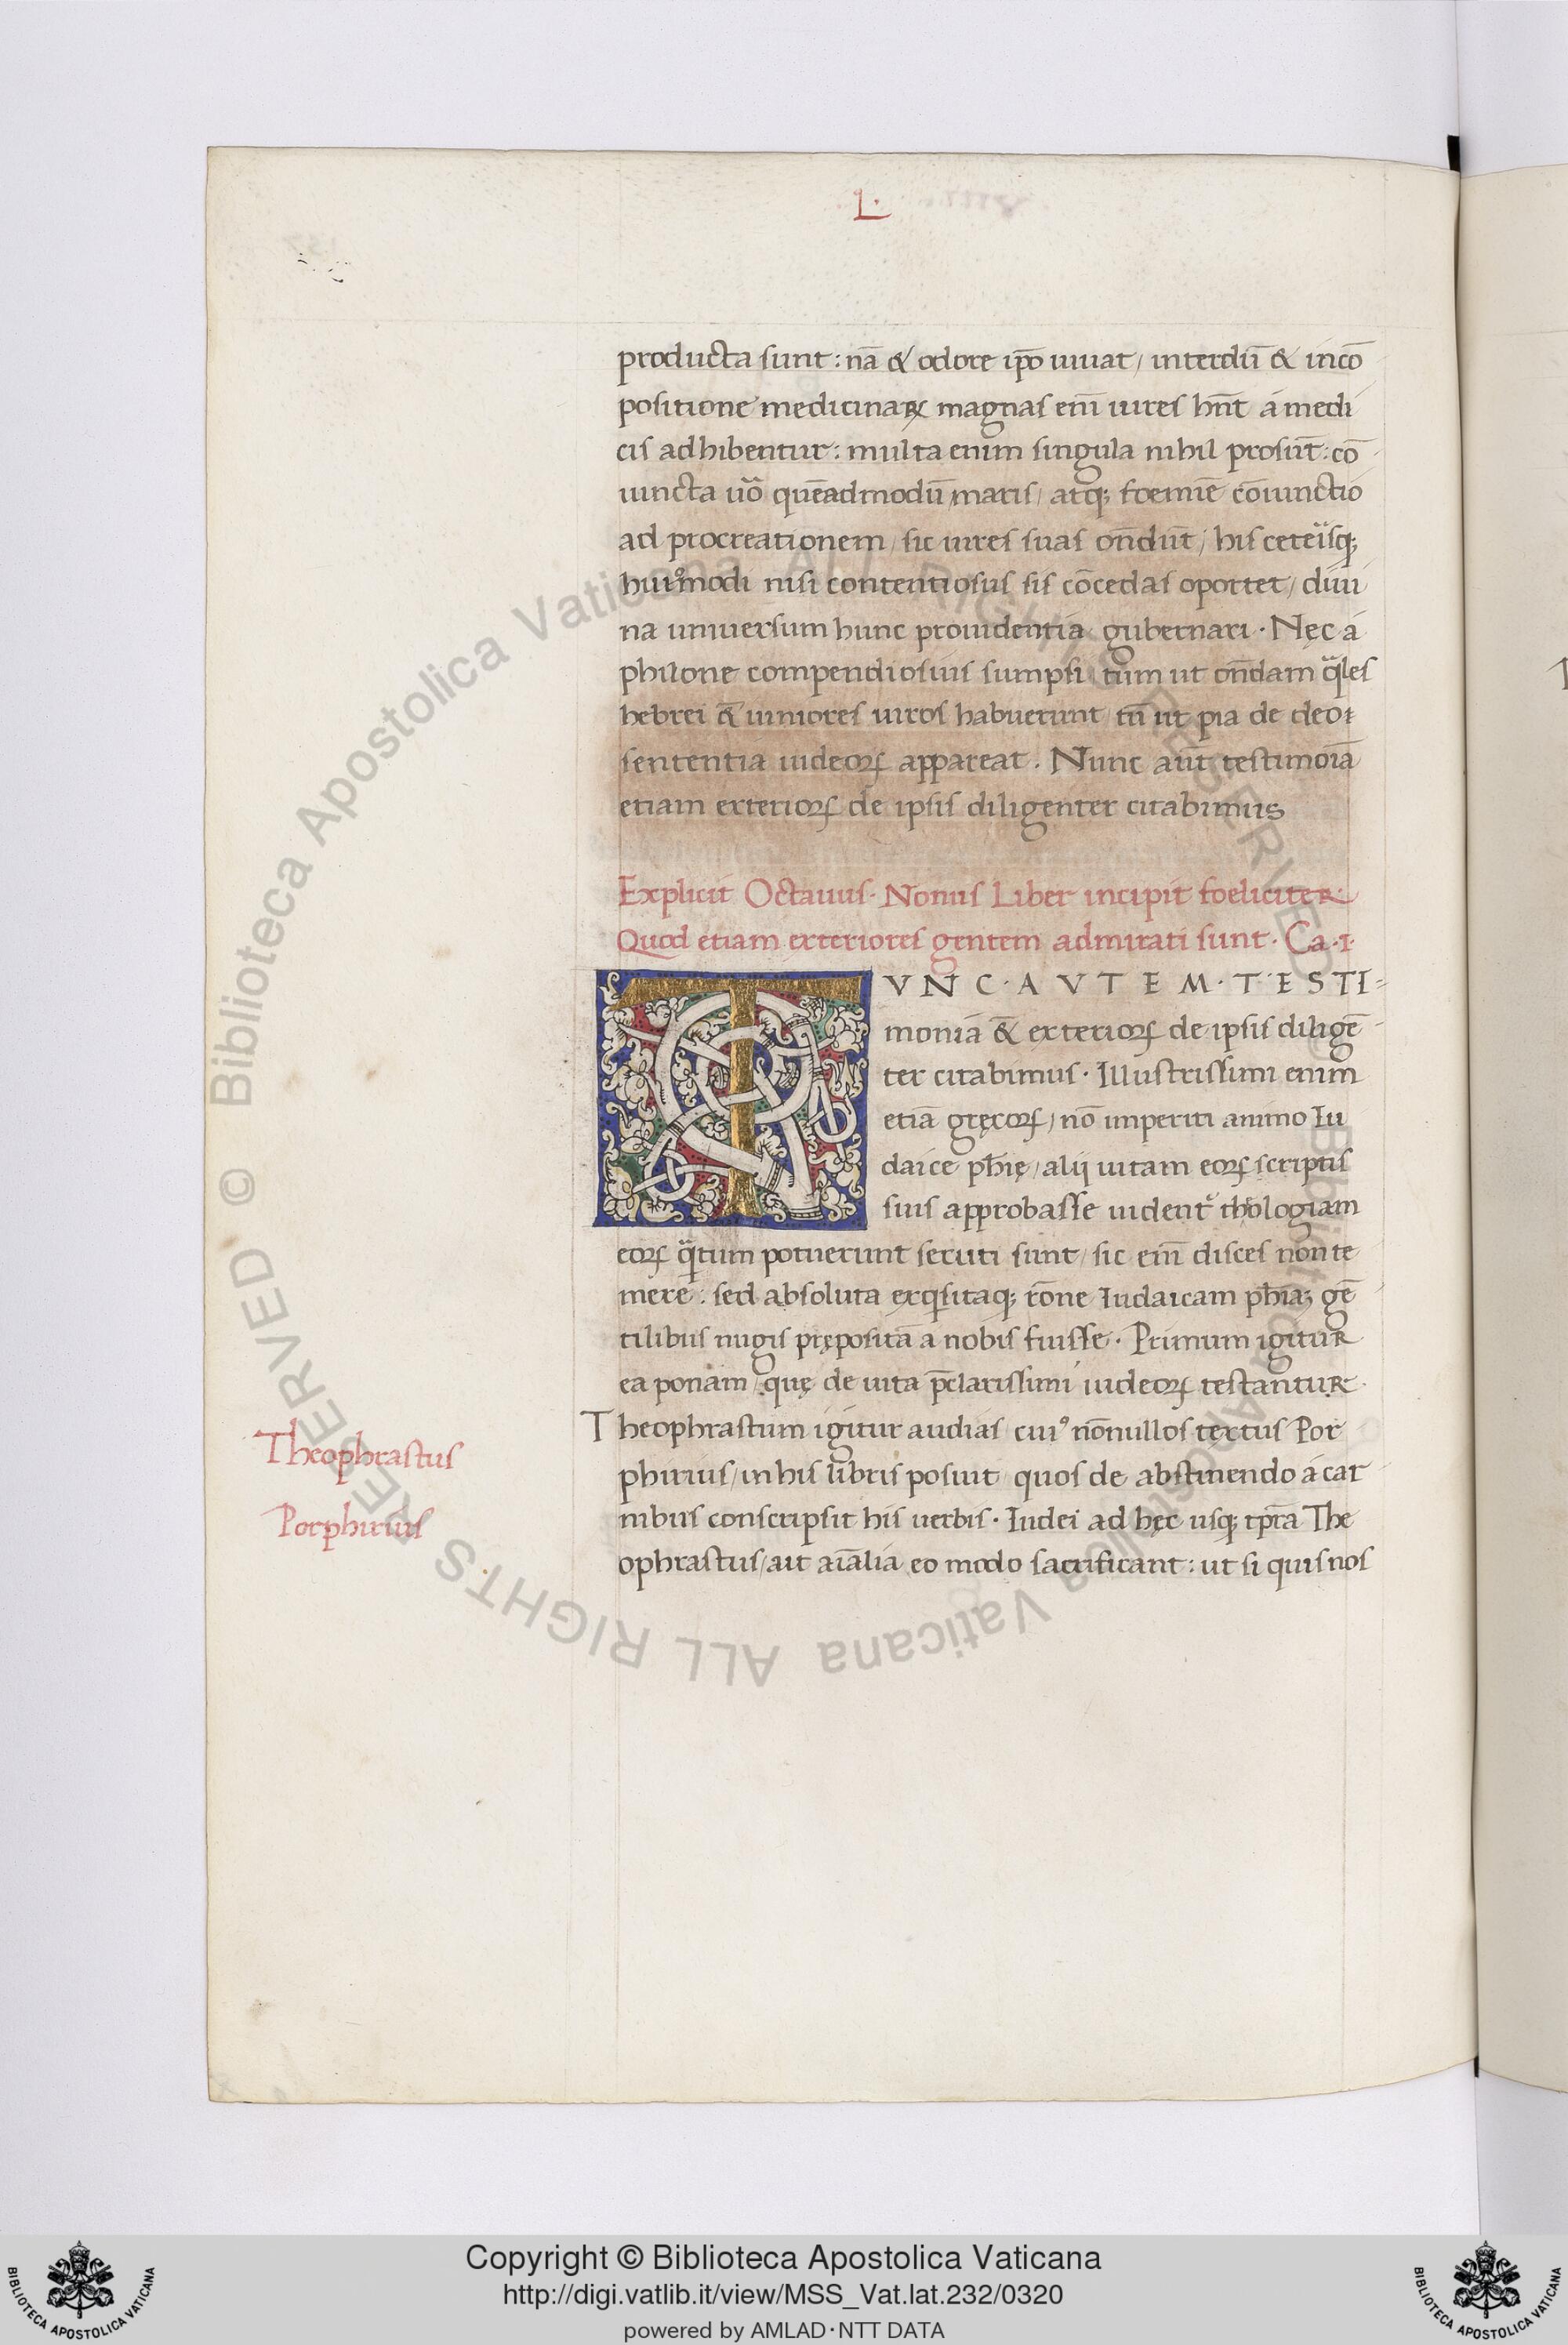 L.
producta sunt: nā & odore ip̄o uiuat/ interdū & in cō
positione medicinaꝝ magnas em̄ uires hn̄t á medi
cis adhibentur: multa enim singula nihil prosūt: cō
iuncta uo᷑ quēadmodū maris/ atqꝫ foemīe cōiunctio
ad procreationem/ sic uires suas on̄dūt/ his ceteisqꝫ
huiꝰmodi nisi contentiosus sis cōcedas oportet/ diui
na uniuersum hunc prouidentia gubernari. Nęc á
philone compendiosius sumpsi/ tum ut on̄dam qales
hebrei & iuniores uiros habuerunt/ tū ut pia de deo
sententia iudeoꝝ appareat. Nunc aūt testimōia
etiam exterioꝝ de ipsis diligenter citabimus
Explicit Octauus. Nonus Liber incipit foeliciter.
Quod etiam exteriores gentem admirati sunt. Ca. 1.
T VNC. AVTEM. TESTI-
monia & exterioꝝ de ipsis diligē
ter citabimus. Illustrissimi enim
etiā gręcoꝝ/ nō imperiti animo Iu
daice ph̄ię/ alij uitam eoꝝ scriptis
suis approbasse uident᷑ thologiam
eoꝝ qatum potuerunt secuti sunt/ sic em̄ disces non te
mere: sed absoluta exqisitaqꝫ rōne Iudaicam ph̄iaꝫ gē
tilibus nugis prępositā a nobis fuisse. Primum igitur
ea ponam/ quę de uita p̄clarissimi iudeoꝝ testantur.
Theophrastum igitur audias cuiꝰ nōnullos textus Por
phirius/ in his libris posuit quos de abstinendo á car
nibus conscripsit his uerbis. Iudei ad hęc usqꝫ tp̄ra The
ophrastus/ ait aīalia eo modo sacrificant: ut si quis nos
Theophrastus
Porphirius
© Biblioteca Apostolica Vaticana ALL RIGHTS RESERVED
© Biblioteca Apostolica Vaticana ALL RIGHTS RESERVED
Copyright © Biblioteca Apostolica Vaticana
http://digi.vatlib.it/view/MSS_Vat.lat.232/0320
powered by AMLAD·NTT DATA
BIBLIOTECA APOSTOLICA VATICANA
BIBLIOTECA APOSTOLICA VATICANA